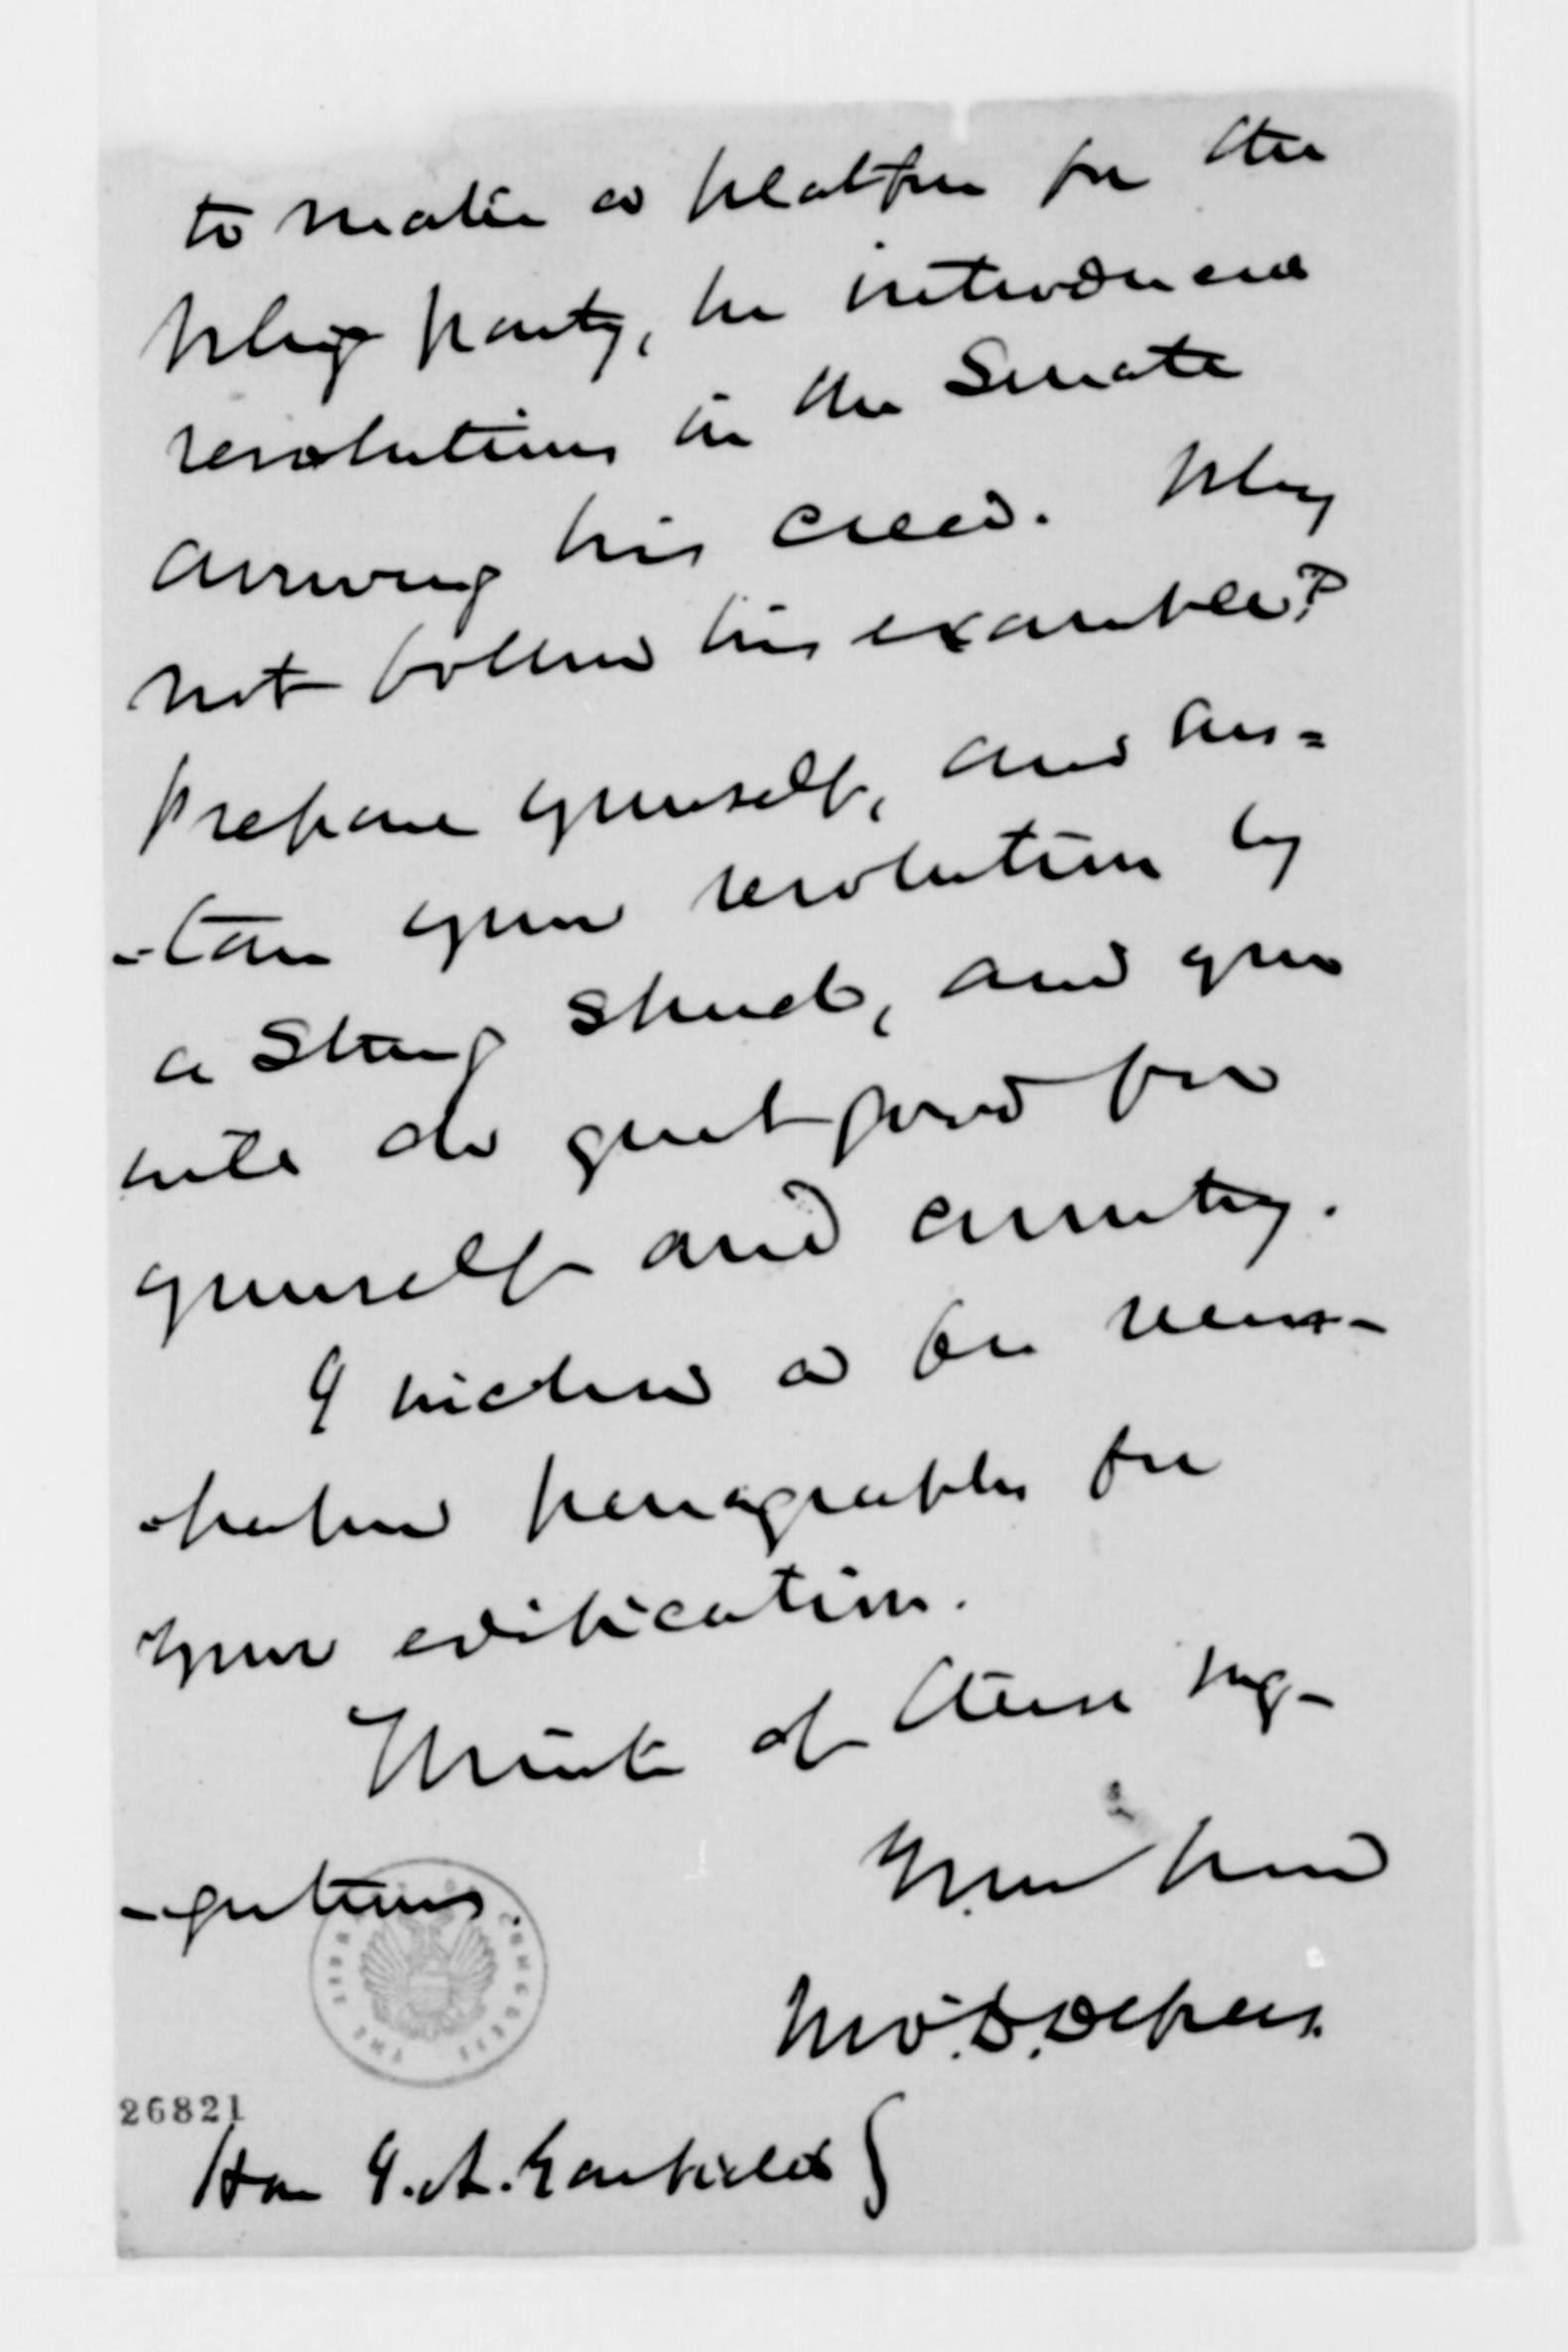 to make a platform for the
Whig party, he introduced
resolutions in the Senate
avowing his creed. Why
not follow his example?
Prepare yourself, and sus-
-tain your resolution by
a strong speech, and you
will do great good for
yourself and country.
I enclose a few news-
-paper paragraphs for
your edification.
Think of these sug-
-gestions.
Your friend
26821
Hon J. A. Garfield }